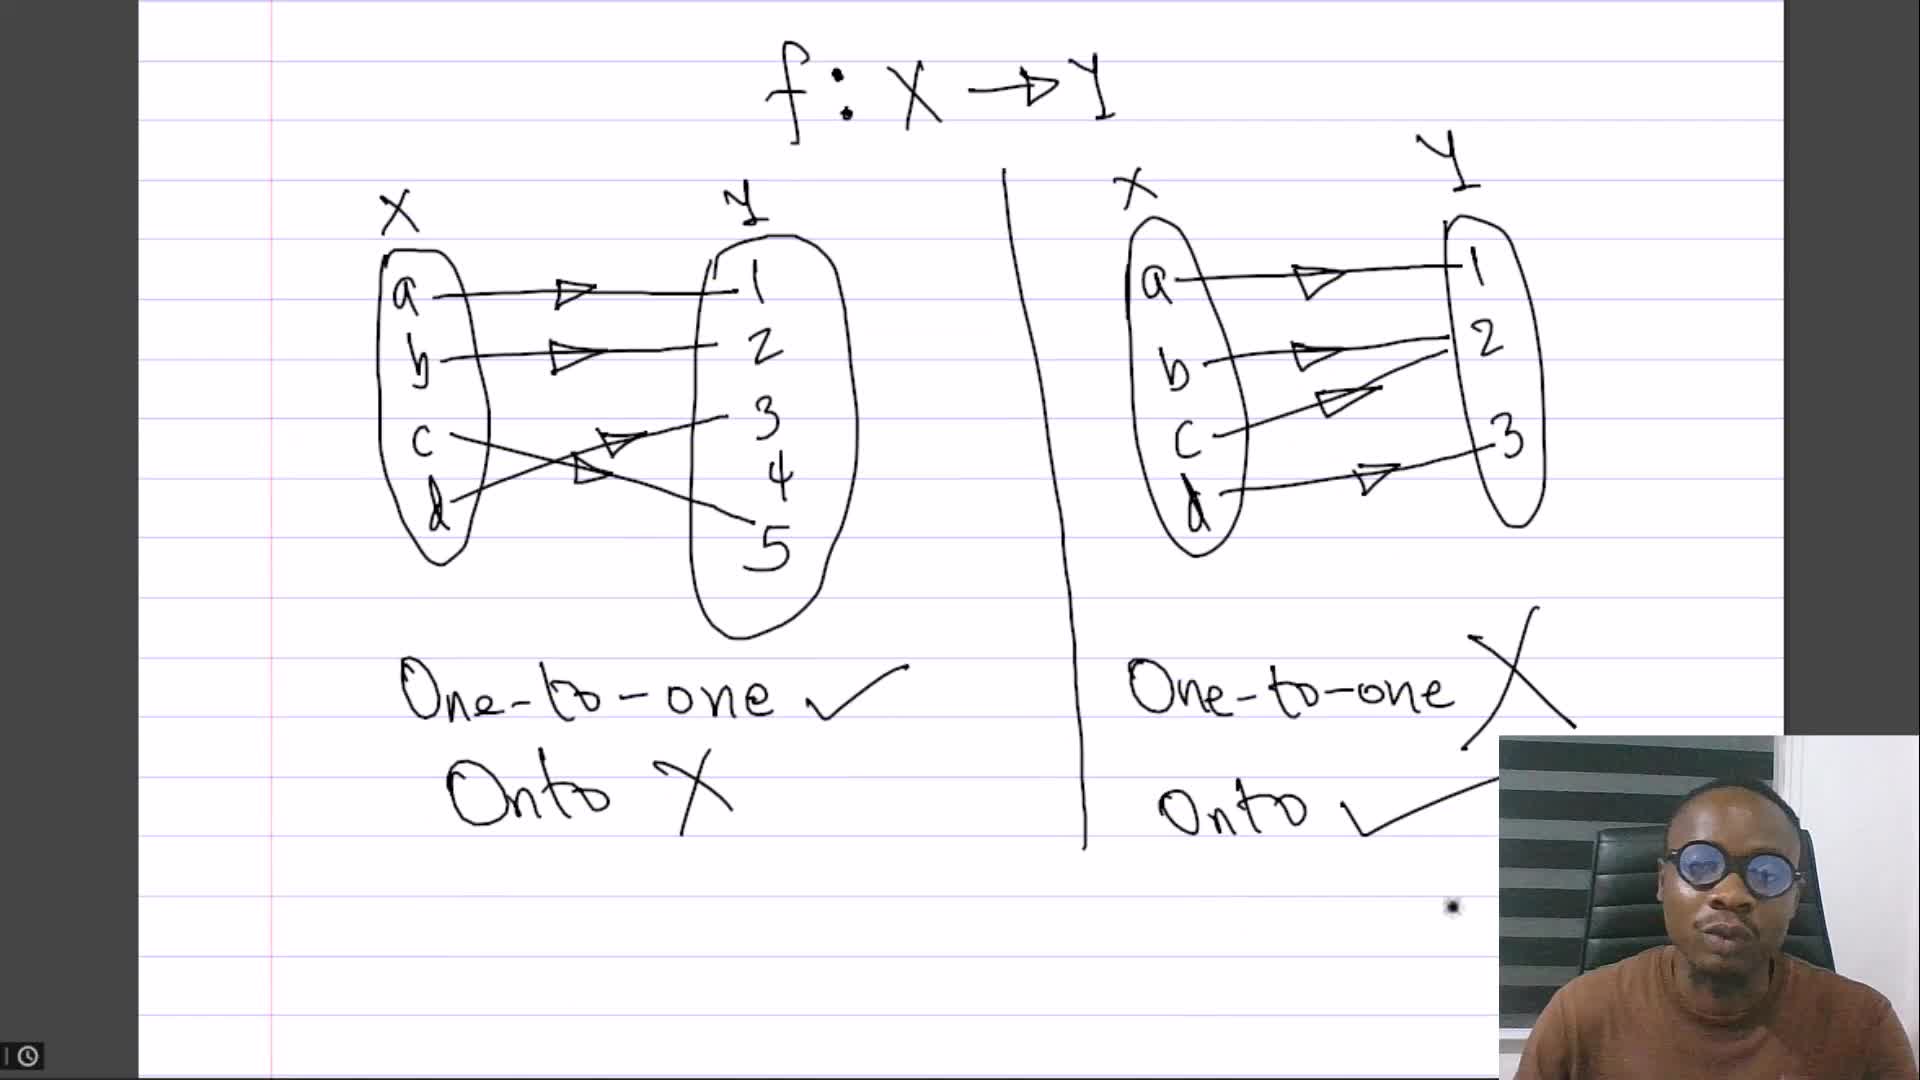 f: X → Y
X Y
a 1
b 2
c 3
d 4
5
One-to-one ✓
Onto X
X Y
a 1
b 2
c 3
d
One-to-one X
Onto ✓